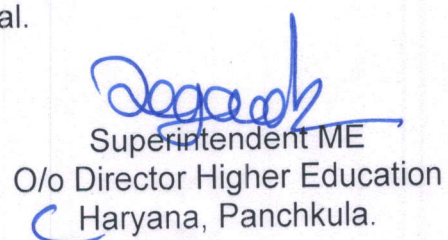 al.
Superintendent ME
O/o Director Higher Education
Haryana, Panchkula.